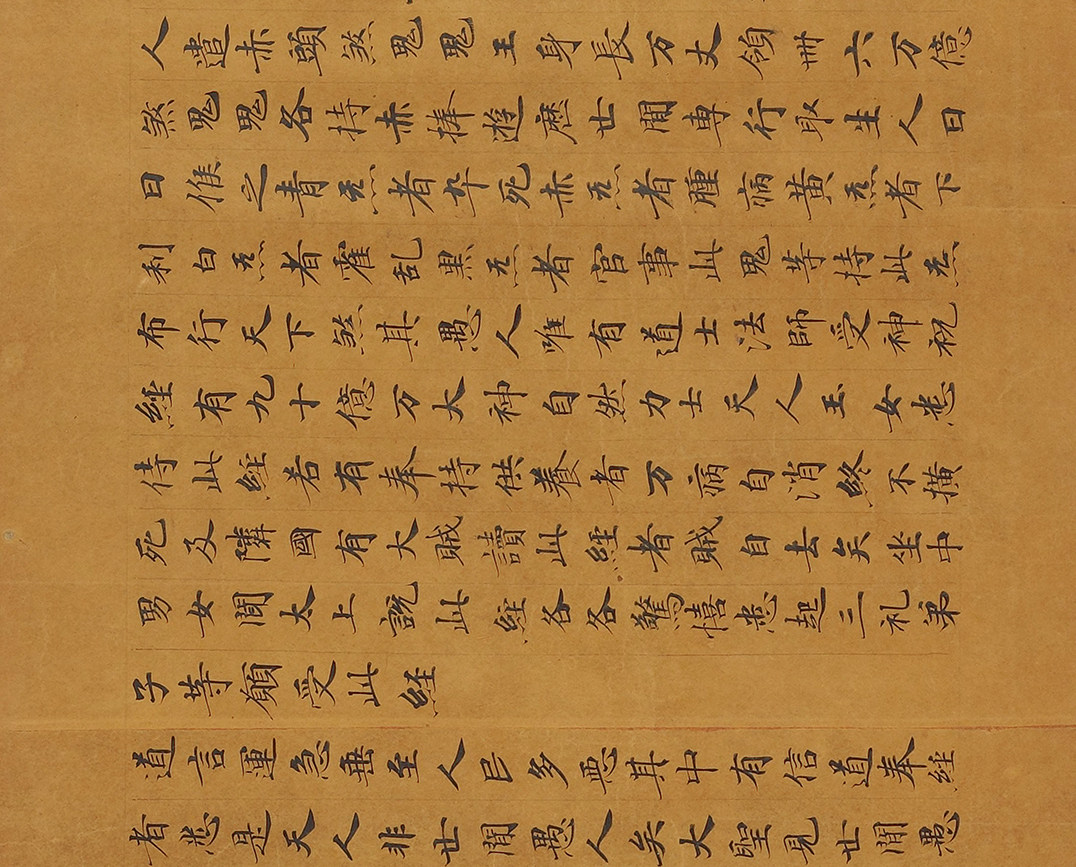 人遣赤頭煞鬼鬼王身長万丈領卌六万億
煞鬼鬼各持赤捧遊歴世間專行取生人日
日候之青炁者卒死赤炁者腫病黄炁者下
利白炁者霍乱黒炁者官事此鬼等持此炁
布行天下煞其愚人唯有道士法師受神祝
經有九十億万大神自然力士天人玉女悉
侍此經若有奉持供養者万病自消終不撗
死及隣國有大賊讀此經者賊自去矣坐中
男女聞太上說此經各各驚憘悉起三礼弟
子等願受此經
道言運急垂至人已多惡其中有信道奉經
者悉是天人非世間愚人矣大聖見世間愚